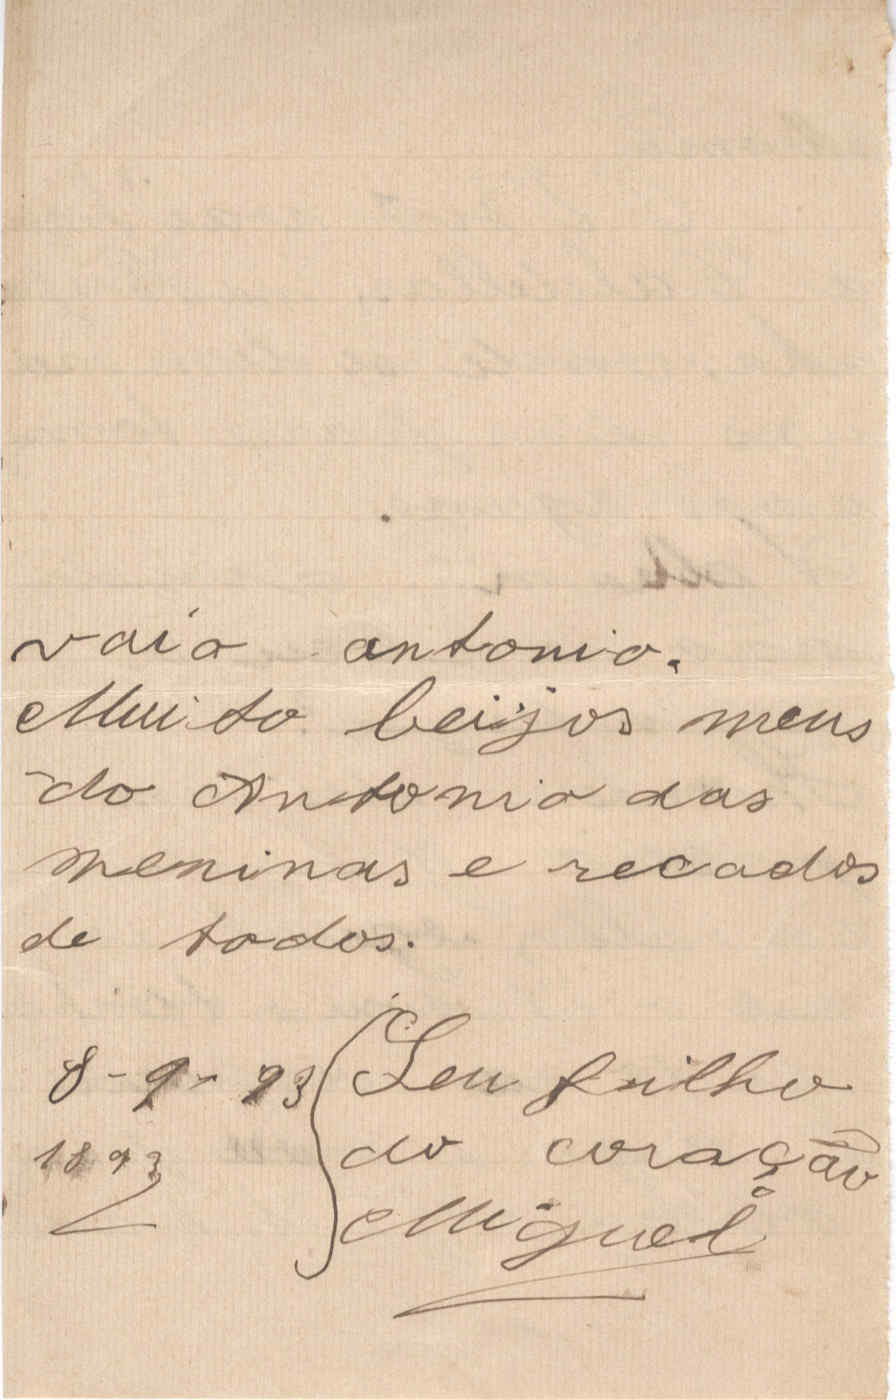 vaio antonio.
Muito beijos meus
do Antonio das
meninas e recados
de todos.
8-9-93
1893
Seu filho
do coração
Miguel